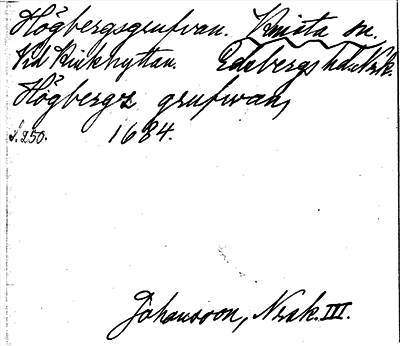 Högbergsgrufvan. Knista sn.
Vid Kinkhyttan. Edsbergs hd Nrk.
Högbergz grufwan,
S. 250. 1684.
Johansson, Noak. III.